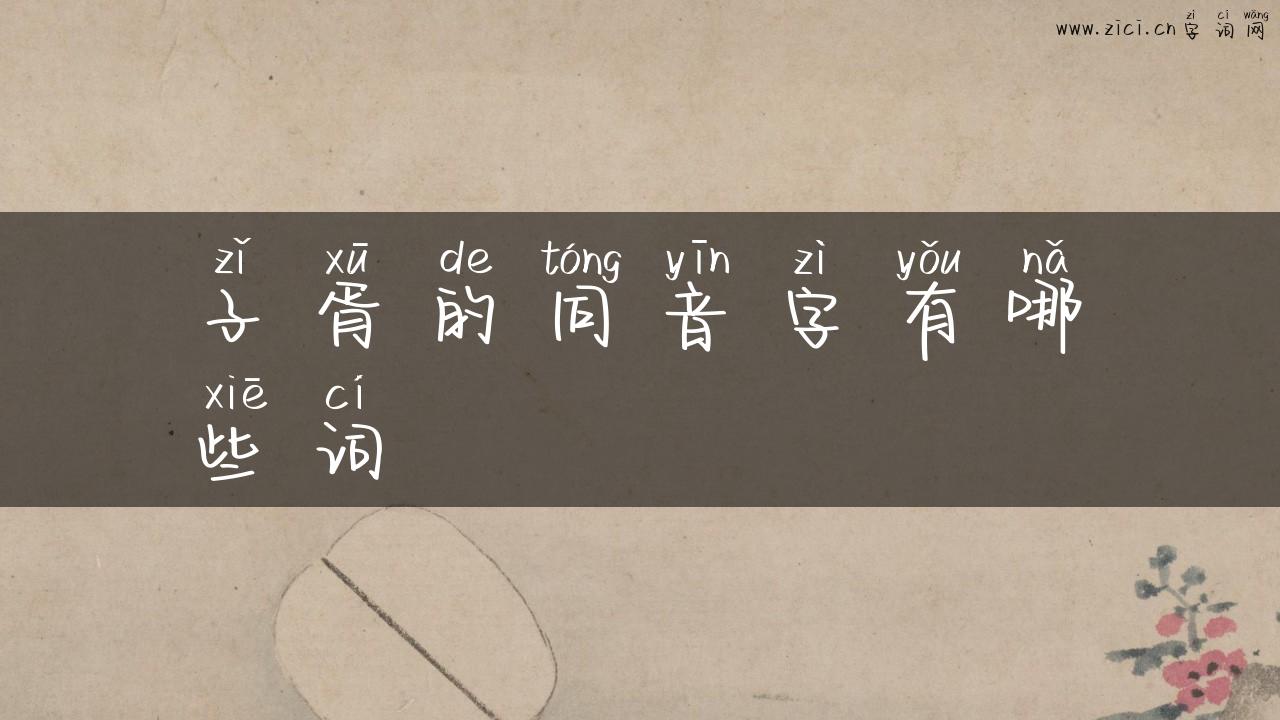 zì cí wǎng
www.zici.cn 字词网
zǐ xū de tóng yīn zì yǒu nǎ
子胥的同音字有哪
xiē cí
些词